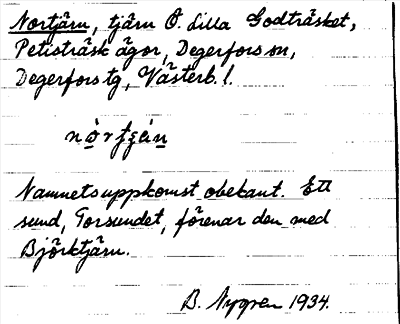 Nortjärn, tjärn Ö. Lilla Godträsket,
Petisträsk ägor, Degerfors sn,
Degerfors tg, Västerb. l.
Namnets uppkomst obekant. Ett
sund, Torsundet, förenar den med
Björktjärn.
B. Nygren 1934.